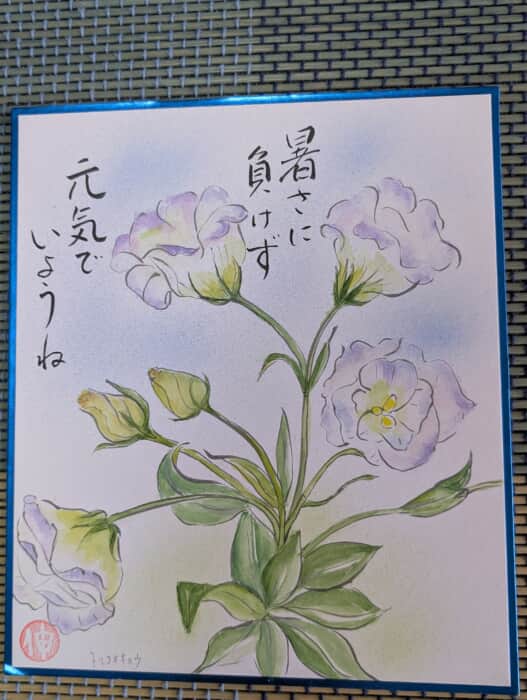 暑さに
負けず
元気で
いようね
トルコキキョウ